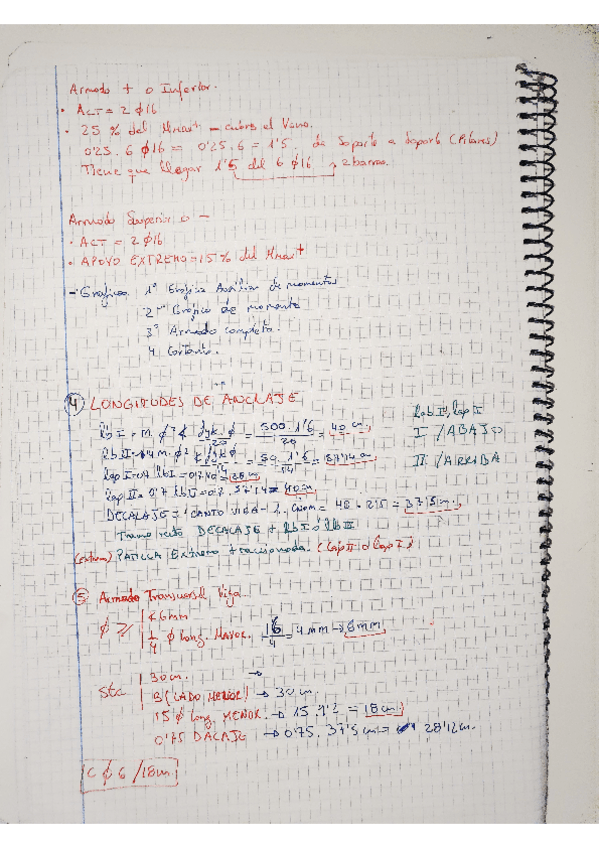 Armado + o Inferior.
• ACT = 2 ϕ16
• 25 % del Mmax+ - cubre el Vano.
0'25 . 6 ϕ16 = 0'25 . 6 = 1'5 . de Soporte a Soporte (Pilares)
Tiene que llegar 1'5 del 6 ϕ16 , 2 barras.
Armado Superior o -
• ACT = 2 ϕ16
• APOYO EXTREMO = 15 % del Mmax+
- Graficos 1º Gráfica Auxiliar de momentos
2º Gráfico de momento
3º Armado completo.
4 Cortante.
4 LONGITUDES DE ANCLAJE
lbI = m . ϕ² ≮ fyk . ϕ / 20 = 500 . 1'6 / 20 = 40 cm,
lbII = 1'4 m . ϕ² ≮ fyk ϕ / 14 = 50 . 1'6 / 14 = 57'14 cm
lapI = 0'7 lbI = 0'7 . 40 = 28 cm,
lapII = 0'7 lbII = 0'7 . 57'14 = 40 cm
lab I, lap I
I / ABAJO
II / ARRIBA
DECALAJE = 1 CANTO VIGA - 2 . Cnom = 37'5 cm,
Tramo recto DECALAJE + lbI ó lbII
(extremo) PATILLA Extremo traccionada (lapII ó lapI)
5 Armado Transversal viga
ϕ ≥ | 6mm
1/4 ϕ Long. MAYOR. 16/4 = 4 mm → 8mm
Sta | 30 cm. →
B (LADO MENOR) → 30 cm.
15 ϕ Long. MENOR → 15 . 1'2 = 18 cm,
0'75 DACAJE → 0'75 . 37'5 cm = 28'12 cm.
C ϕ 6 / 18 cm